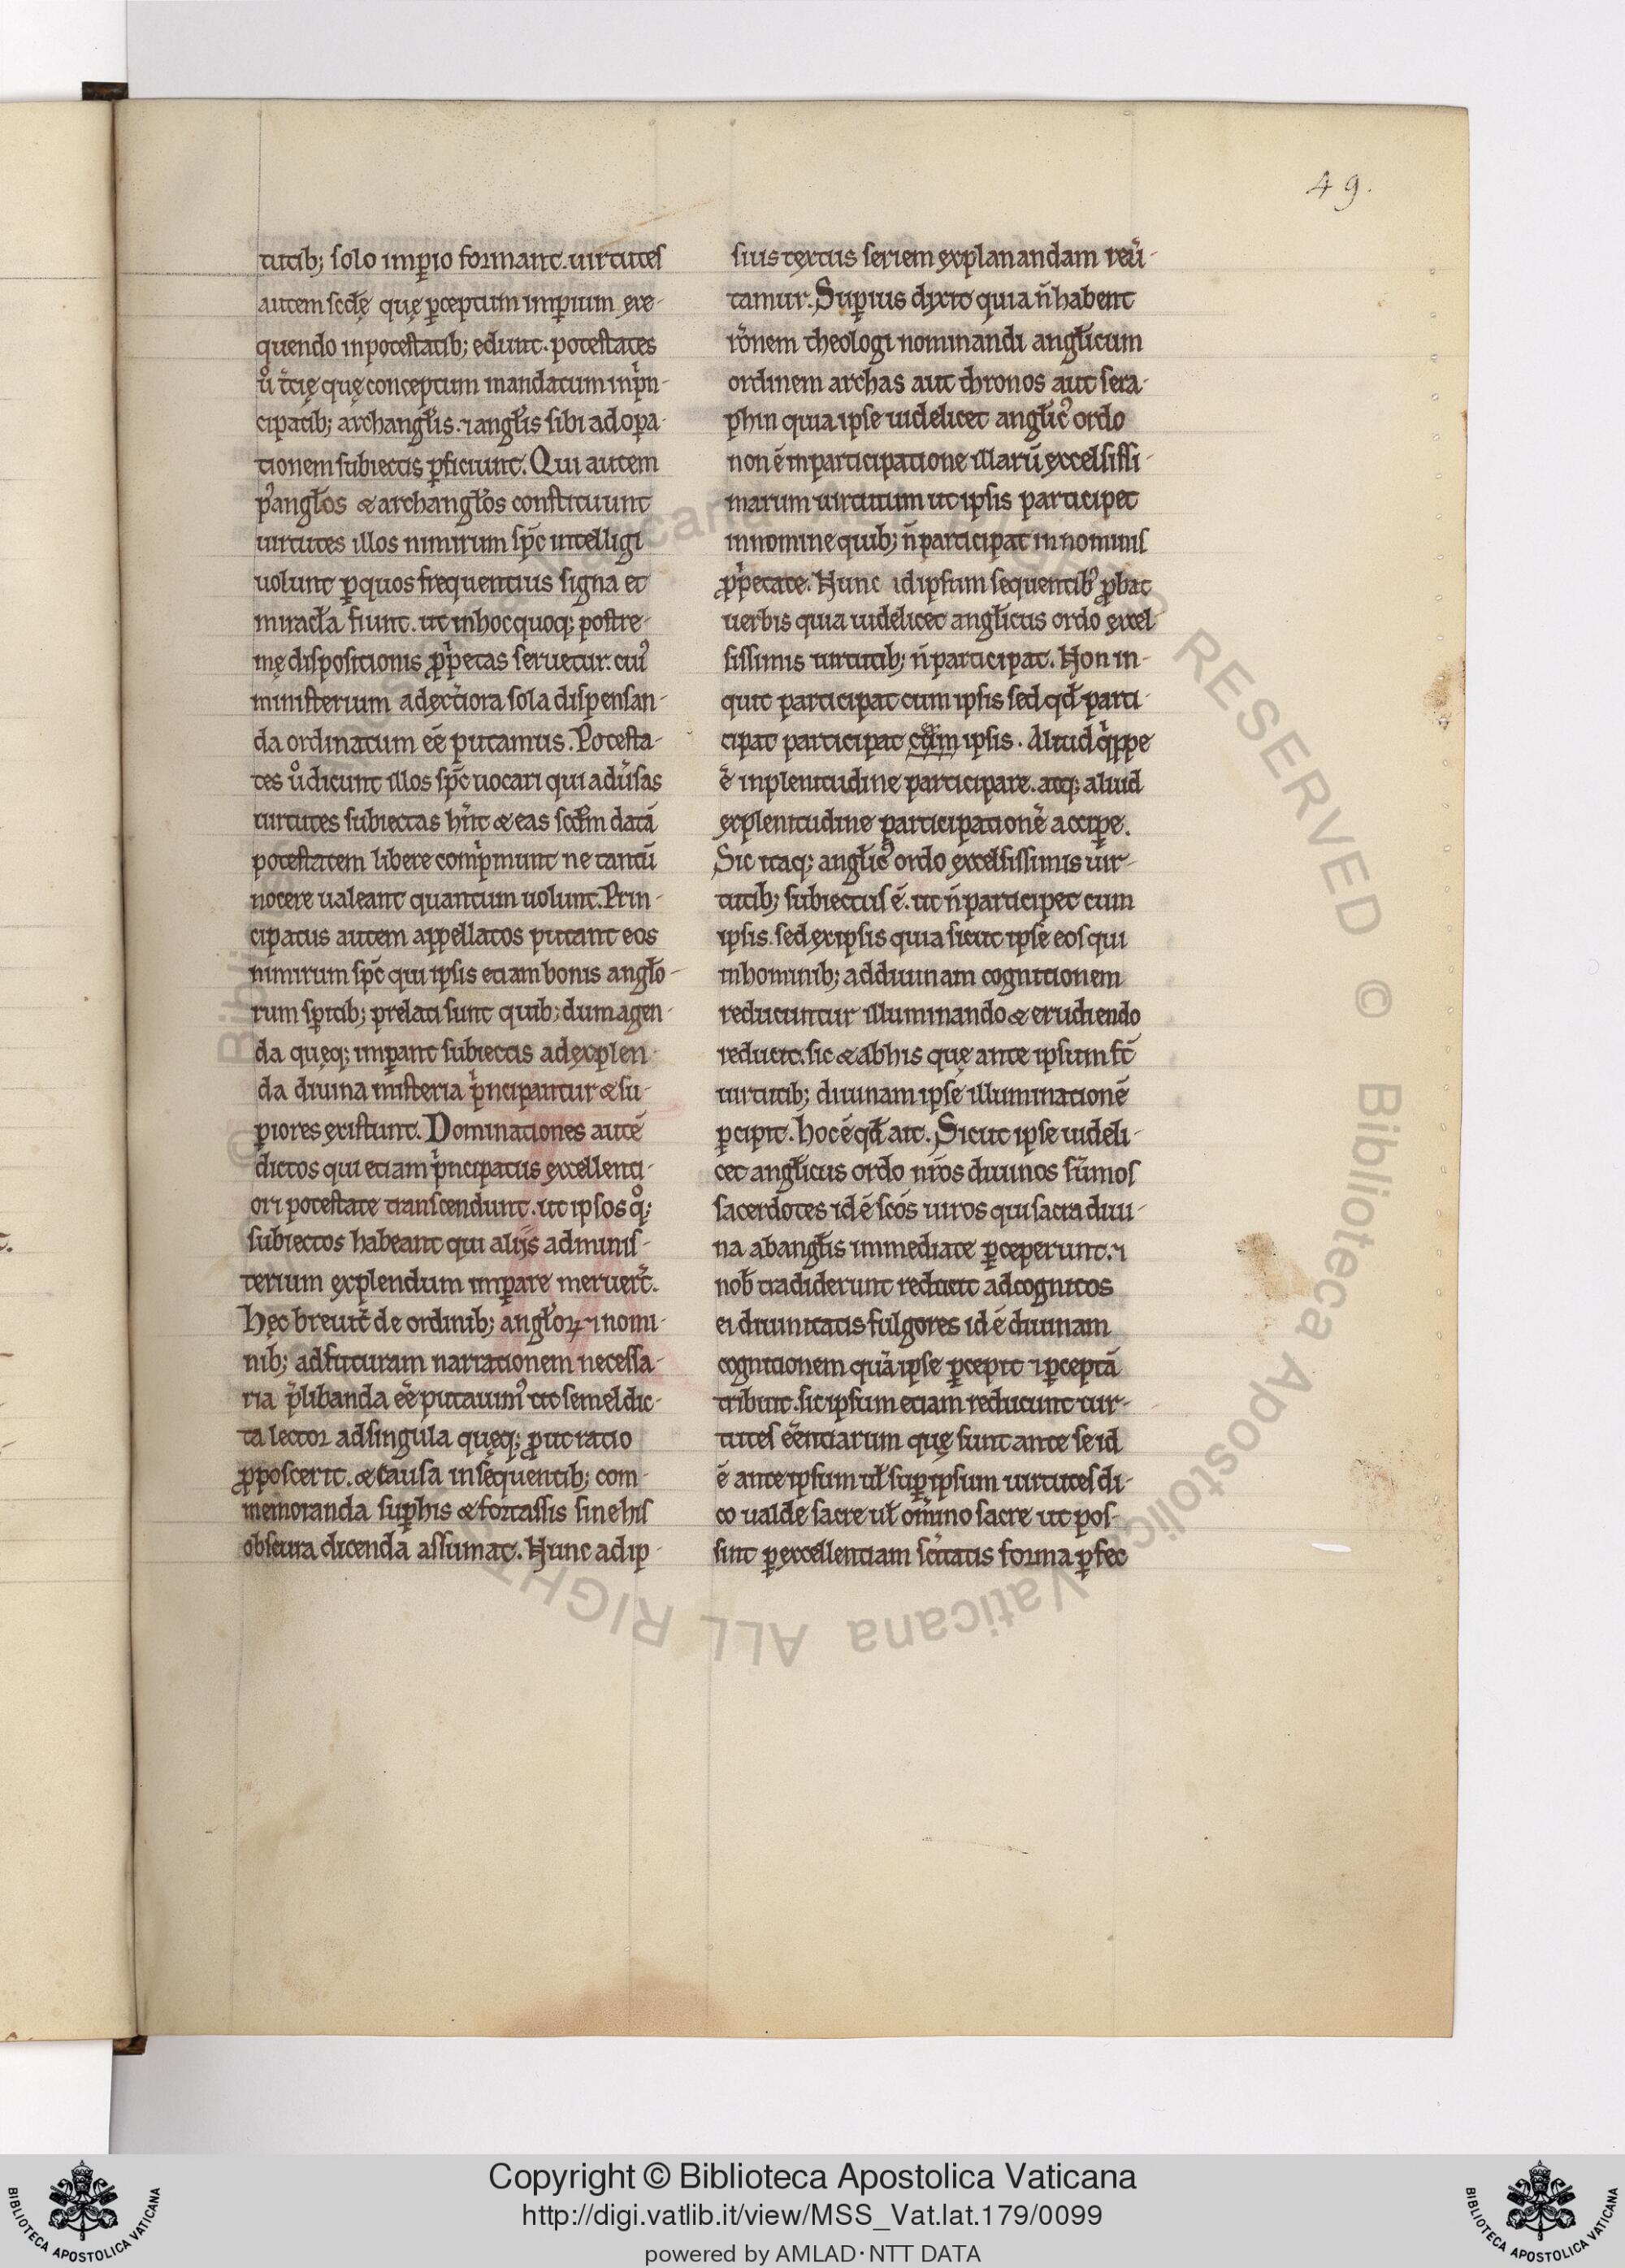 49.
tutib; solo imꝑio formant. uirtutes
autem scd̄ę quę ꝑceptum imꝑium exe-
quendo in potestatib; edunt. potestates
ů t̄cię quę conceptum mandatum in pͥn-
cipatib; archangl̄is. ⁊ angl̄is sibi ad opa-
tionem subiectis ꝑficiunt. Qui autem
angl̄os & archangl̄os constituunt
uirtutes illos nimirum sp̄c intelligi
uolunt ꝑ quos frequentius signa et
miracl̄a fiunt. ut in hoc quoq; postre-
mę dispositionis ꝓpͥetas seruetur. cuiꝰ
ministerium ad exͭiora sola dispensan-
da ordinatum eē putamus. Potesta-
tes ů dicunt illos sp̄c uocari qui adūsas
uirtutes subiectas hn̄t & eas scd̄m datā
potestatem libere compͥmunt ne tantū
nocere ualeant quantum uolunt. Prin-
cipatus autem appellatos putant eos
nimirum sp̄c qui ipsis etiam bonis angl̄o-
rum sp̄itib; prelati sunt quib; dum agen-
da quęq; imꝑant subiectis ad explen-
da diuina misteria pͥncipantur & su-
ꝑiores existunt. Dominationes autē
dictos qui etiam pͥncipatus excellenti-
ori potestate transcendunt. ut ipsos q̊;
subiectos habeant qui alijs ad minis-
terium explendum imꝑare meruer̄t.
Hęc breuit̄ de ordinib; angl̄oꝝ ⁊ nomi-
nib; ad futuram narrationem necessa-
ria p̄libanda eē putauimꝰ ut semel dic-
ta lector ad singula quęq; ꝓut ratio
ꝓposcerit. & causa in sequentib; com-
memoranda suꝑ his & fortassis sine his
obscura dicenda assumat. Nunc ad ip-
sius textus seriem explanandam reū-
tamur. Suꝑius dixit quia n̄ habent
rōnem theologi nominandi angl̄icum
ordinem archas aut thronos aut sera-
phin quia ipse uidelicet angl̄icꝰ ordo
non ē in participatione illarū excelsissi-
marum uirtutum ut ipsis participet
in nomine quib; n̄ participat in nominis
ꝓpͥetate. Nunc id ipsum sequentibꝰ ꝓbat
uerbis quia uidelicet angl̄icus ordo excel-
sissimis uirtutib; n̄ participat. Non in-
quit participat cum ipsis sed qd̄ parti-
cipat participat ipsis. Aliud qͥppe
ē in plenitudine participare. atq; aliud
ex plenitudine participationē acciꝑe.
Sic itaq; angl̄icꝰ ordo excelsissimis uir-
tutib; subiectus ē. ut n̄ participet cum
ipsis. sed ex ipsis quia sicut ipse eos qui
in hominib; ad diuinam cognitionem
reducuntur illuminando & erudiendo
reducit. sic & ab his quę ante ipsum st̄
uirtutib; diuinam ipse illuminationē
ꝑcipit. hoc ē qd̄ ait. Sicut ipse uideli-
cet angl̄icus ordo nr̄os diuinos sūmos
sacerdotes id ē scōs uiros qui sacra diui-
na ab angl̄is immediate ꝑceperunt. ⁊
nob̄ tradiderunt reducit ad cognitos
ei diuinitatis fulgores id ē diuinam
cognitionem quā ipse ꝑcepit ⁊ ꝑceptā
tribuit. sic ipsum etiam reducunt uir-
tutes eēntiarum quę sunt ante se id
ē ante ipsum ul̄ suꝑ ipsum uirtutes di-
co ualde sacre ul̄ om̄ino sacre ut pos-
sint ꝑ excellentiam sc̄itatis forma ꝑfec
© Biblioteca Apostolica Vaticana ALL RIGHTS RESERVED © Biblioteca Apostolica Vaticana ALL RIGHTS
Copyright © Biblioteca Apostolica Vaticana
http://digi.vatlib.it/view/MSS_Vat.lat.179/0099
powered by AMLAD·NTT DATA
BIBLIOTECA APOSTOLICA VATICANA
BIBLIOTECA APOSTOLICA VATICANA